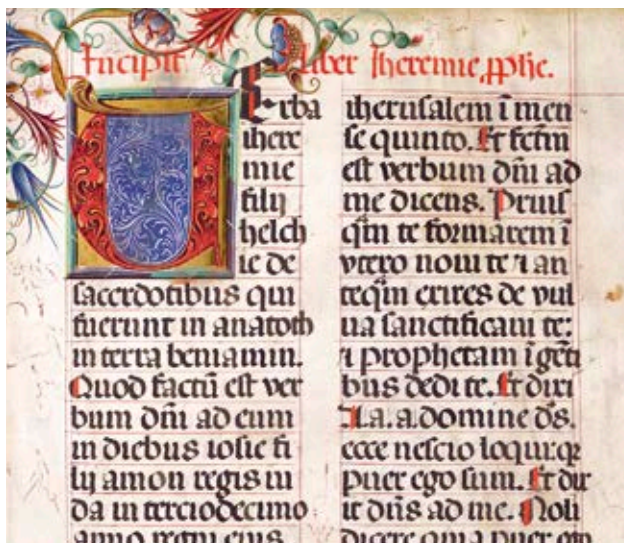 Incipit Liber Jheremie ꝓphe.
UErba
ihere
mie
filij
helch
ie de
sacerdotibus qui
fuerunt in anatoth
in terra beniamin.
Quod factū est ver
bum dn̄i ad eum
in diebus iosie fi
lij amon regis iu
da in terciodecimo
anno regni eius
iherusalem ī men
se quinto. Et fctm̄
est verbum dn̄i ad
me dicens. Prius
qm̄ te formarem ī
vtero noui te ⁊ an
teqm̄ exires de vul
ua sanctificaui te:
⁊ prophetam ī gēti
bus dedi te. Et dixi
A.a.a.domine ds̄.
ecce nescio loqui: qꝛ
puer ego sum. Et dix
it dn̄s ad me. Noli
dicere quia puer ego